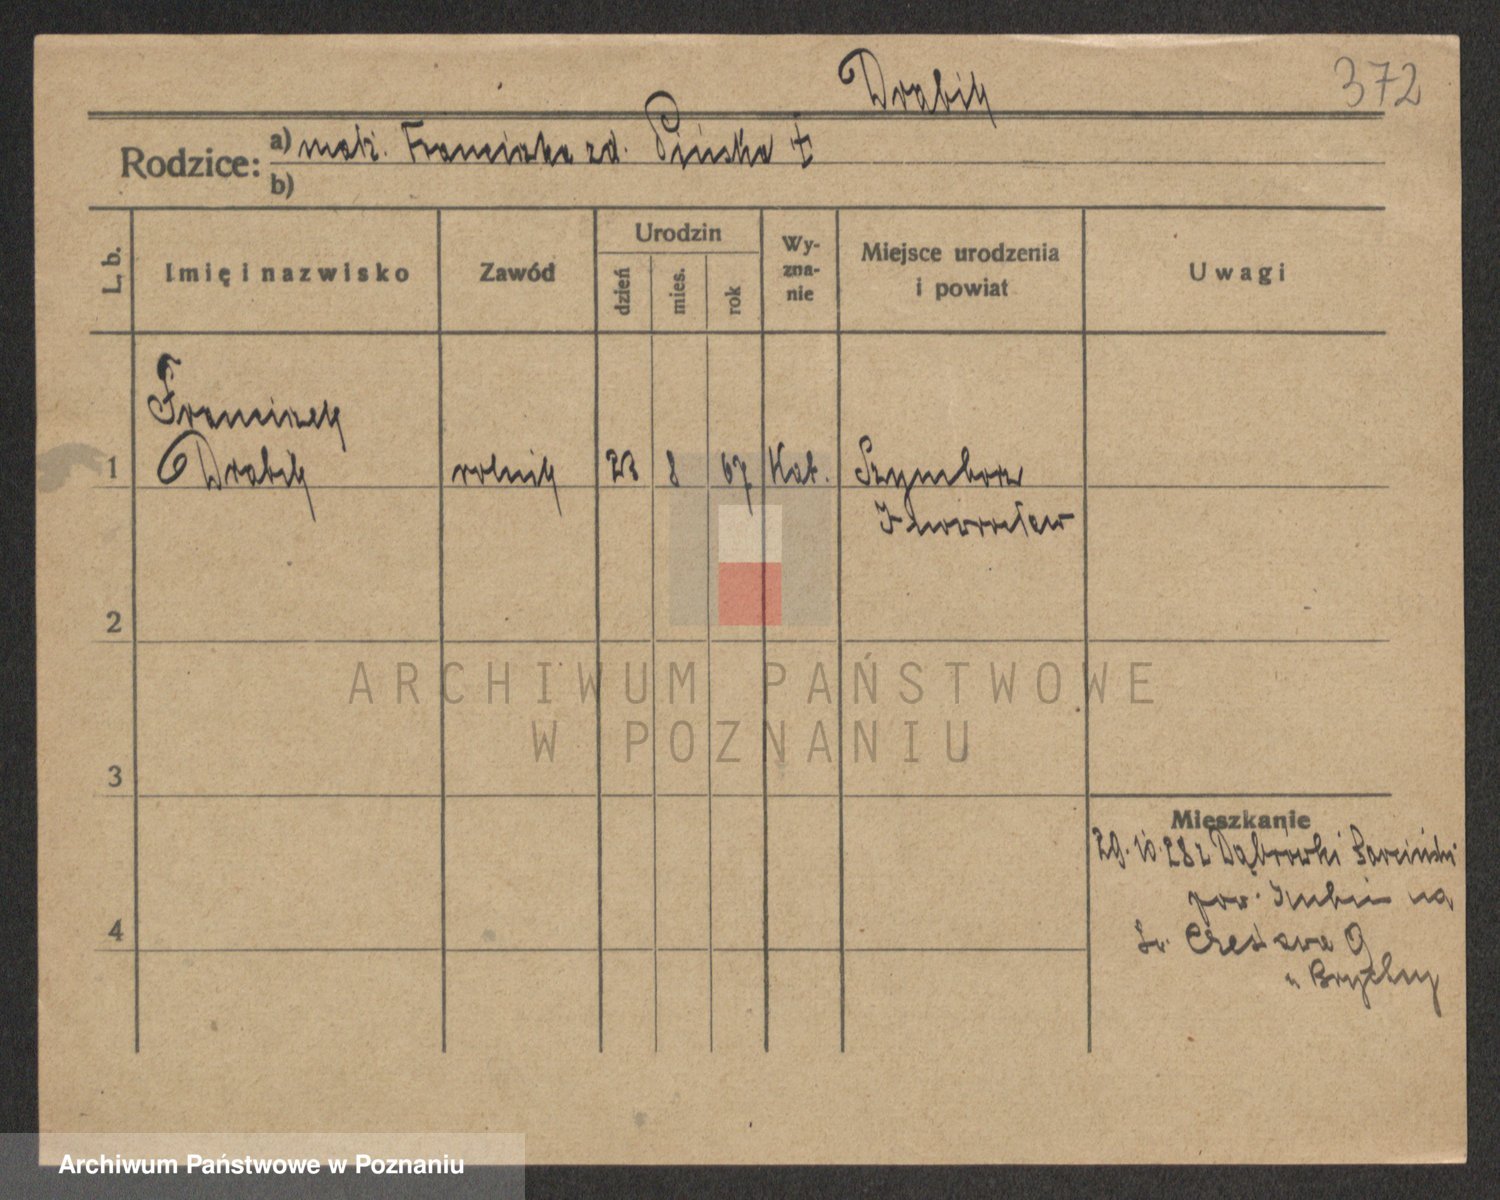 Drabik
372
Rodzice: a) matż. Franciszka zd. Pińska ‡
b)
L. b.
Imię i nazwisko
Zawód
Urodzin
dzień
mies.
rok
Wy-
zna-
nie
Miejsce urodzenia
i powiat
Uwagi
Franciszek
1 Drabik rolnik 23 8 67 Kat. Szymborz
Inowrocław
2
3
4
Mieszkanie
29.10.28 z Dąbrówki Barcińskiej
pow. Szubin na
Czesława 9
u
ARCHIWUM PAŃSTWOWE
W POZNANIU
Archiwum Państwowe w Poznaniu